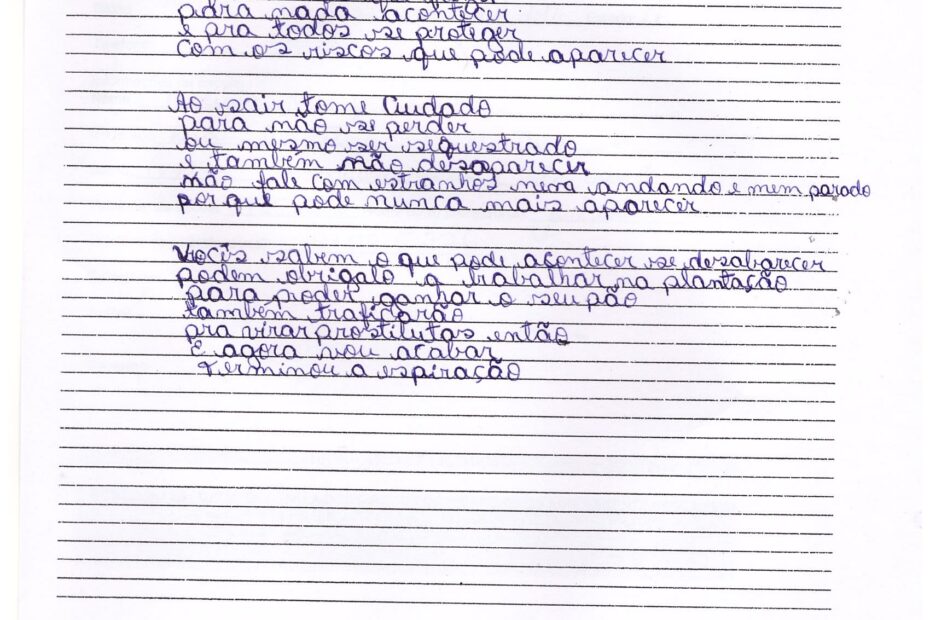 para nada acontecer
e pra todos se proteger
com os riscos que pode aparecer
Ao sair tome cuidado
para não se perder
ou mesmo ser sequestrado
e também não desaparecer
não fale com estranhos nem andando e nem parado
porque pode nunca mais aparecer
Vocês sabem o que pode acontecer se desabarecer
podem obrigalo a trabalhar na plantação
para poder ganhar o seu pão
também traficarão
pra virar prostitutas então
e agora vou acabar
terminou a espiração